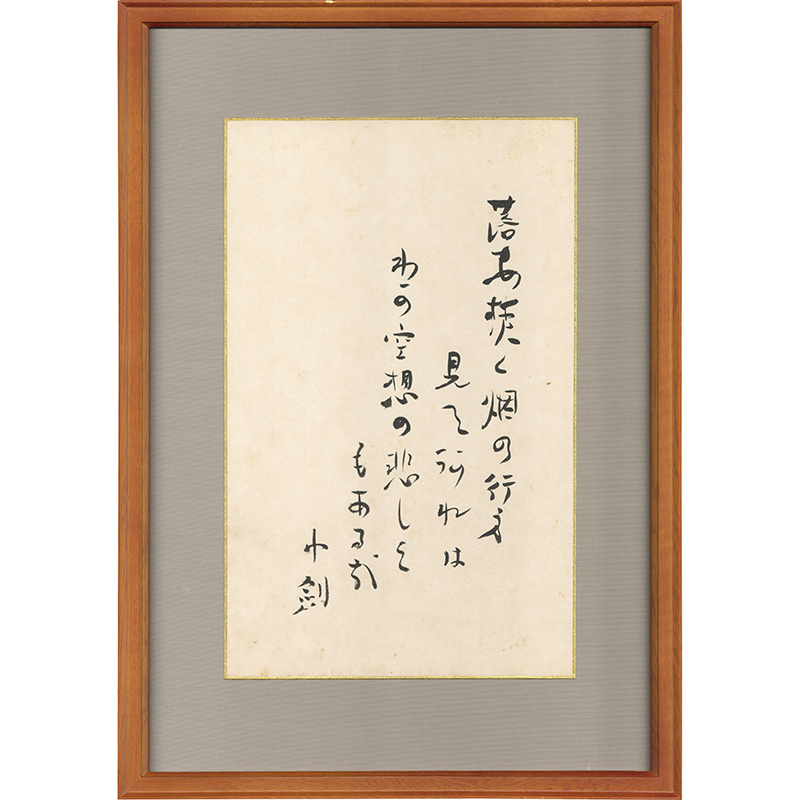 落葉焚く烟の行方
見てゐれは
わか空想の悲しく
もある哉
小劍